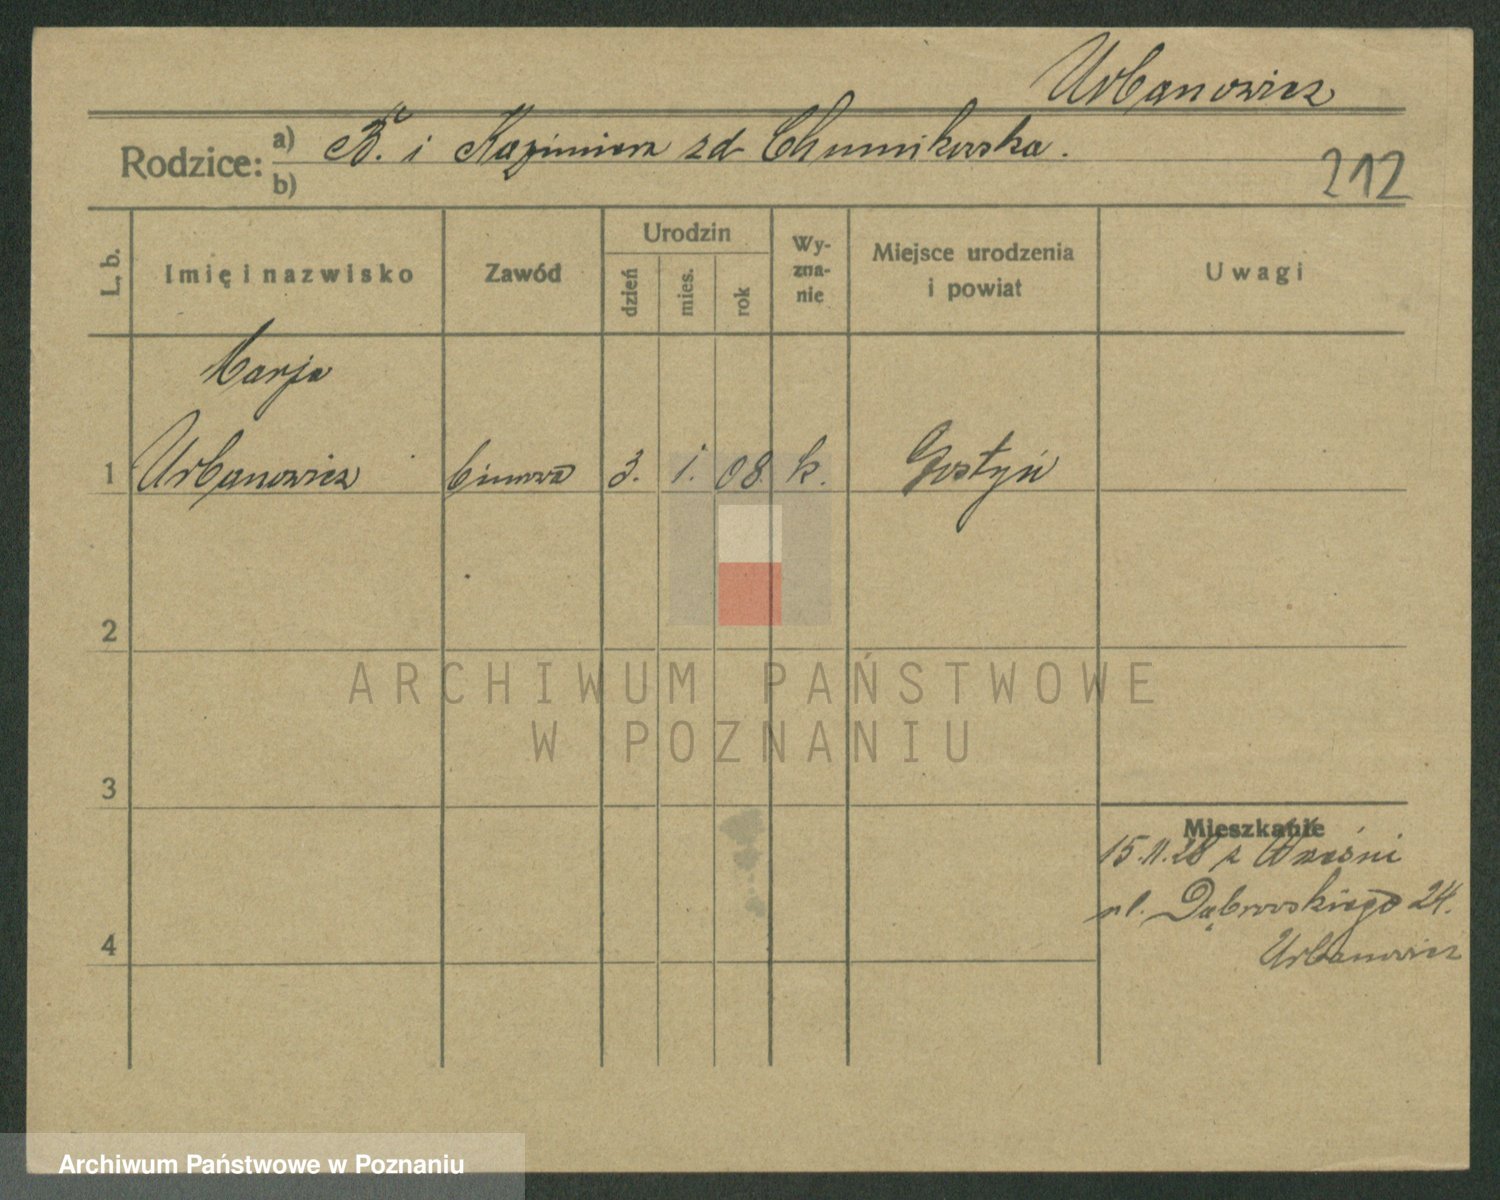 Urbanowicz
Rodzice: a) B. i Kazimiera zd Chumikowska.
b)
212
L. b. Imię i nazwisko Zawód Urodzin dzień mies. rok Wyznanie Miejsce urodzenia i powiat Uwagi
Marja
1 Urbanowicz biurowa 3. 1. 08. k. Gostyń
2
ARCHIWUM PAŃSTWOWE
W POZNANIU
3
Mieszkanie
15.11.28 z Wrześni
ul. Dąbrowskiego 24.
4
Urbanowicz
Archiwum Państwowe w Poznaniu